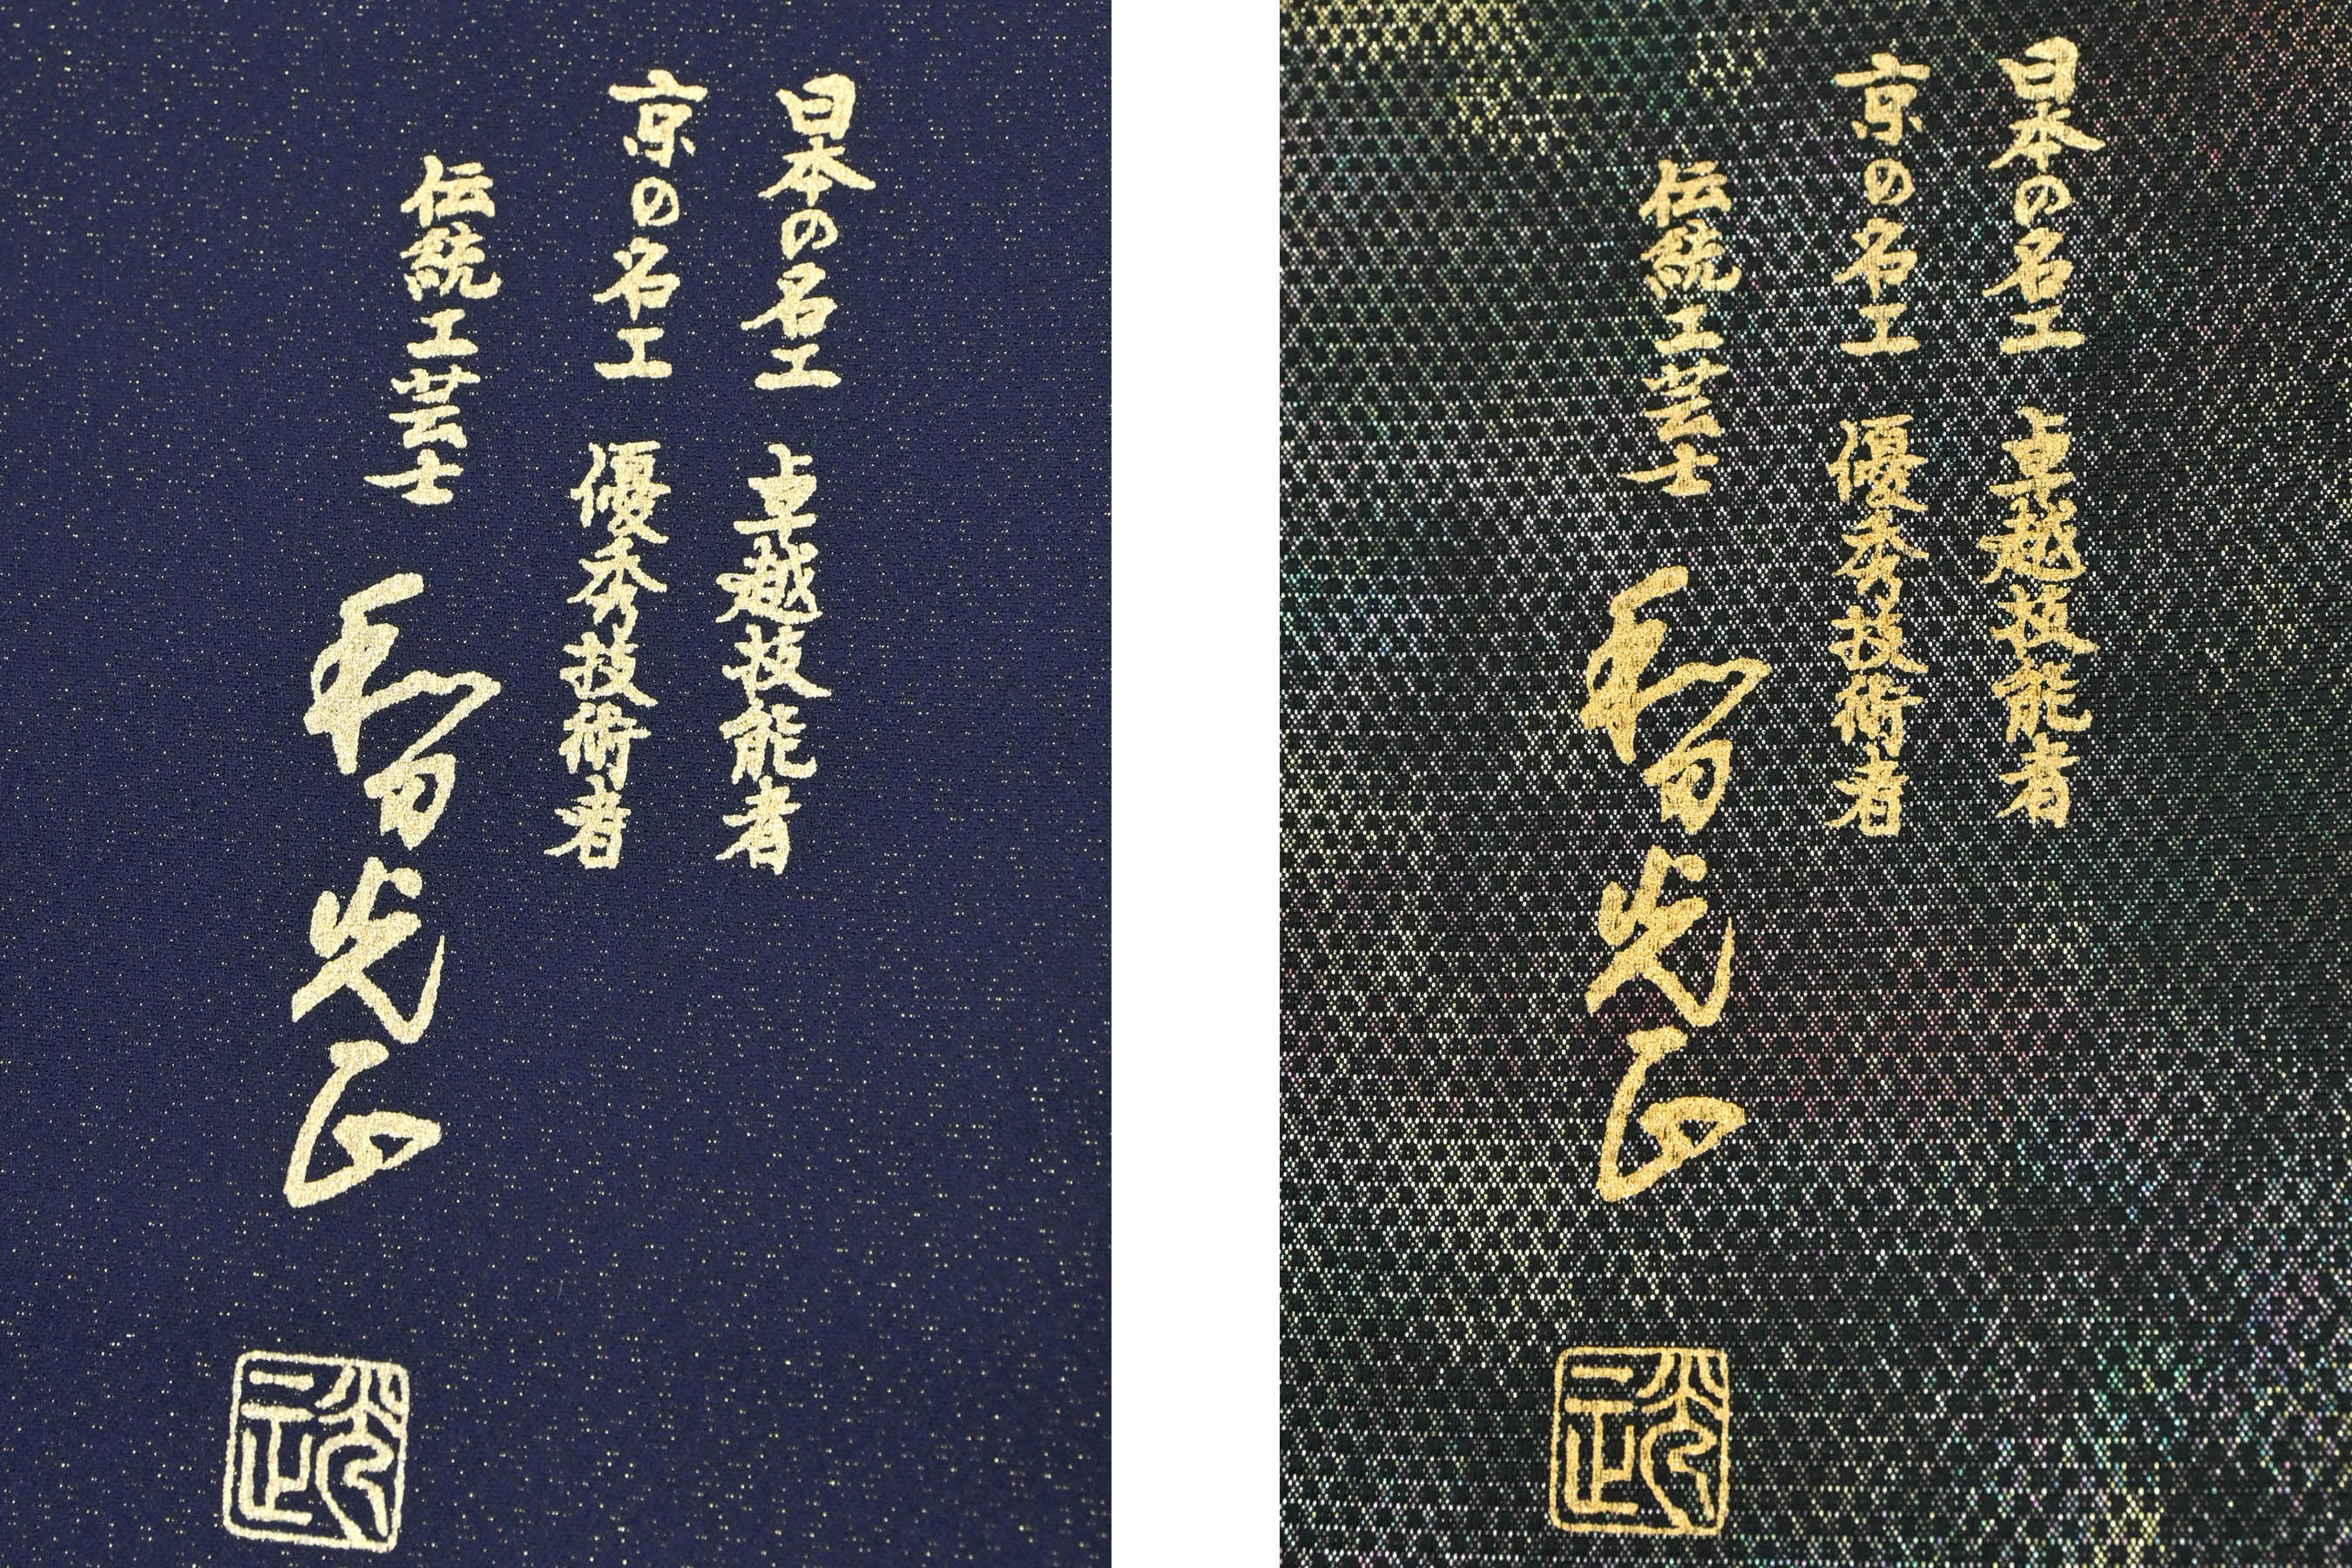 日本の名工 卓越技能者
京の名工 優秀技術者
伝統工芸士 和田光正
光正
日本の名工 卓越技能者
京の名工 優秀技術者
伝統工芸士 和田光正
光正